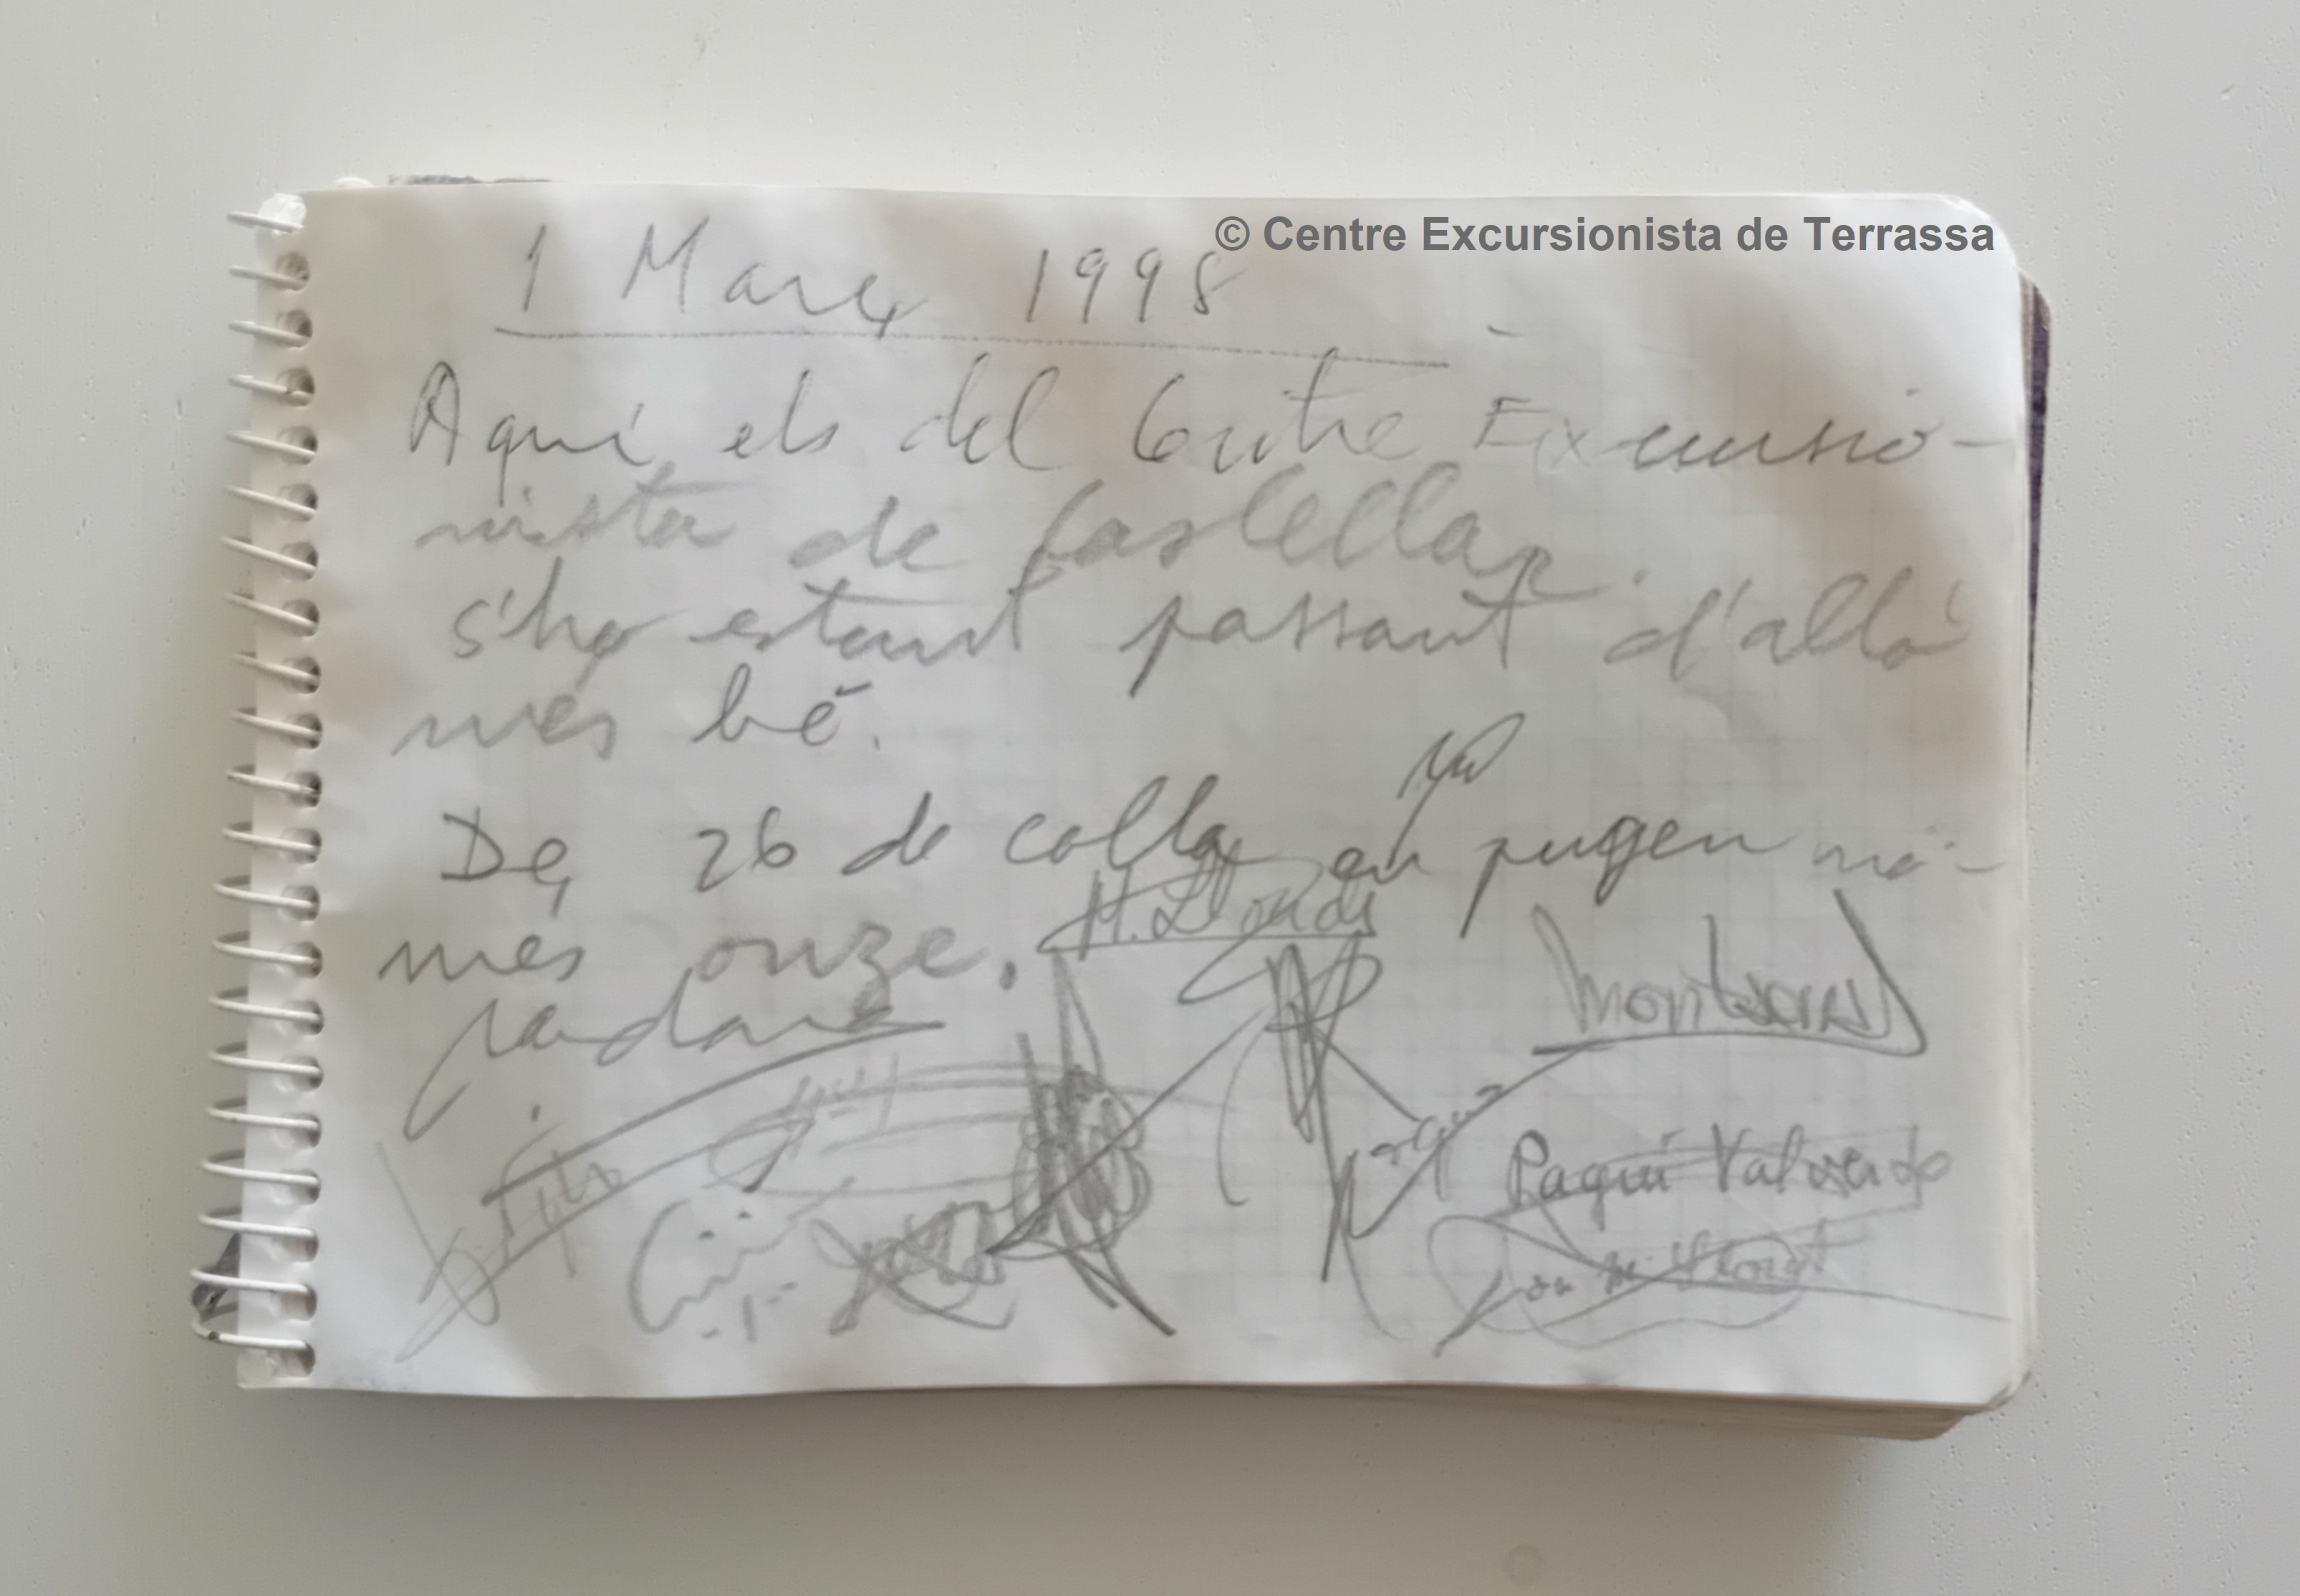 © Centre Excursionista de Terrassa
1 Març 1998
Aquí els del Centre Excursio-
nista de Castellar
s'ho estant passant d'alló
mes bé.
De 26 de colla en pugen no-
més onze.
Montserrat
Paqui Valverde